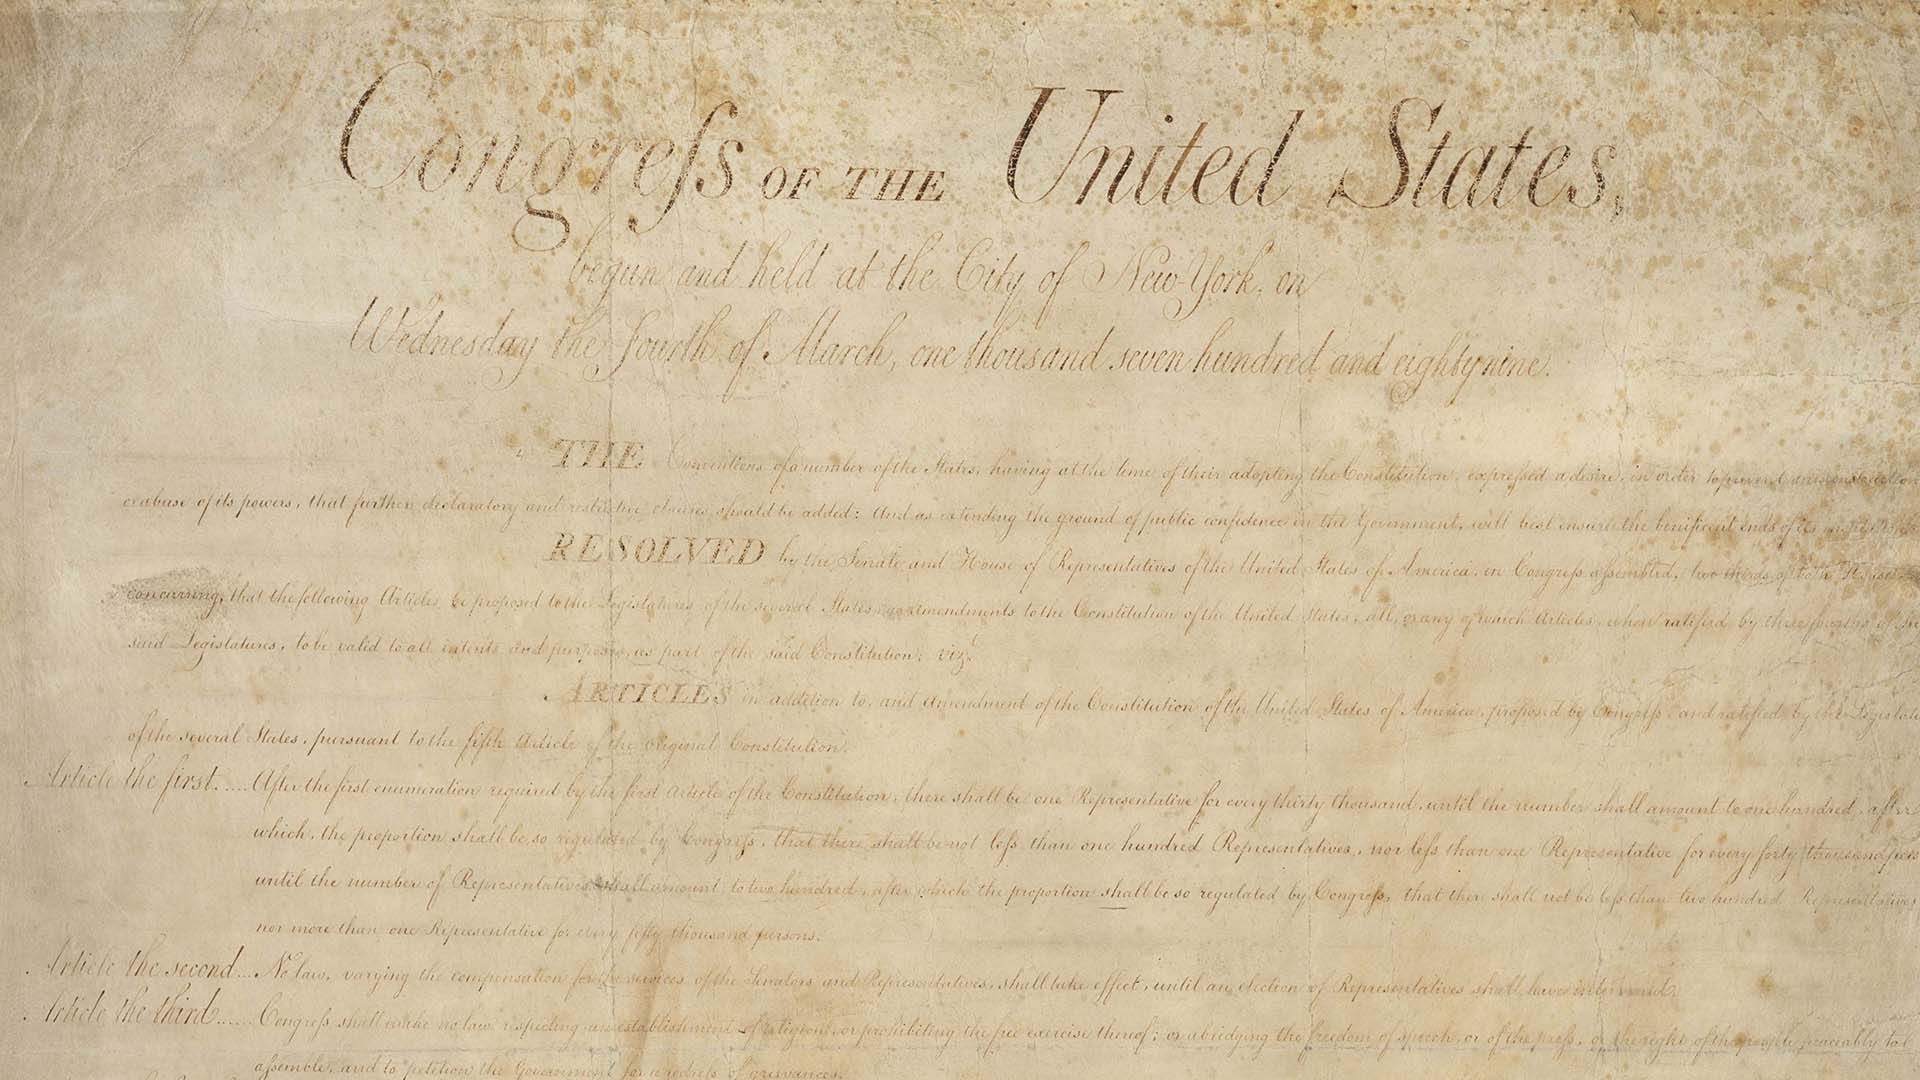 Congreſs OF THE United States,
begun and held at the City of New-York, on
Wednesday the fourth of March, one thousand seven hundred and eighty nine.
THE Conventions of a number of the States, having at the time of their adopting the Constitution, expreſsed a desire, in order to prevent misconstruction
or abuse of its powers, that further declaratory and restrictive clauses should be added: And as extending the ground of public confidence in the Government, will best ensure the benificent ends of its
RESOLVED by the Senate and House of Representatives of the United States of America, in Congreſs aſsembled, two thirds of both Houses
concurring, that the following Articles be proposed to the Legislatures of the several States, as amendments to the Constitution of the United States, all, or any of which Articles, when ratified by three fourths of the
said Legislatures, to be valid to all intents and purposes, as part of the said Constitution; viz.t
ARTICLES in addition to, and Amendment of the Constitution of the United States of America, proposed by Congreſs, and ratified by the Legislatu
of the several States, pursuant to the fifth Article of the original Constitution.
Article the first..... After the first enumeration required by the first Article of the Constitution, there shall be one Representative for every thirty thousand, until the number shall amount to one hundred, after
which, the proportion shall be so regulated by Congreſs, that there shall be not leſs than one hundred Representatives, nor leſs than one Representative for every forty thousand persons
until the number of Representatives shall amount to two hundred, after which the proportion shall be so regulated by Congreſs, that there shall not be leſs than two hundred Representatives
nor more than one Representative for every fifty thousand persons.
Article the second... No law, varying the compensation for the services of the Senators and Representatives, shall take effect, until an election of Representatives shall have intervened.
Article the third..... Congreſs shall make no law respecting an establishment of religion, or prohibiting the free exercise thereof; or abridging the freedom of speech, or of the preſs, or the right of the people peaceably to
aſsemble, and to petition the Government for a redreſs of grievances.